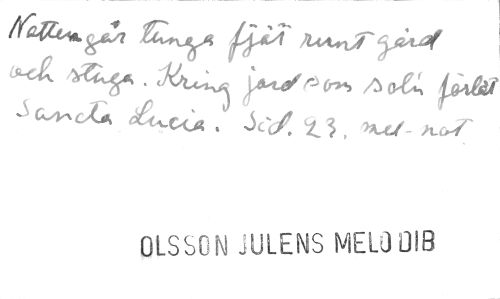 Natten går tunga fjät runt gård
och stuga. Kring jord som sol'n förlät
Sancta Lucia. Sid. 23. mel-not
OLSSON JULENS MELODIB